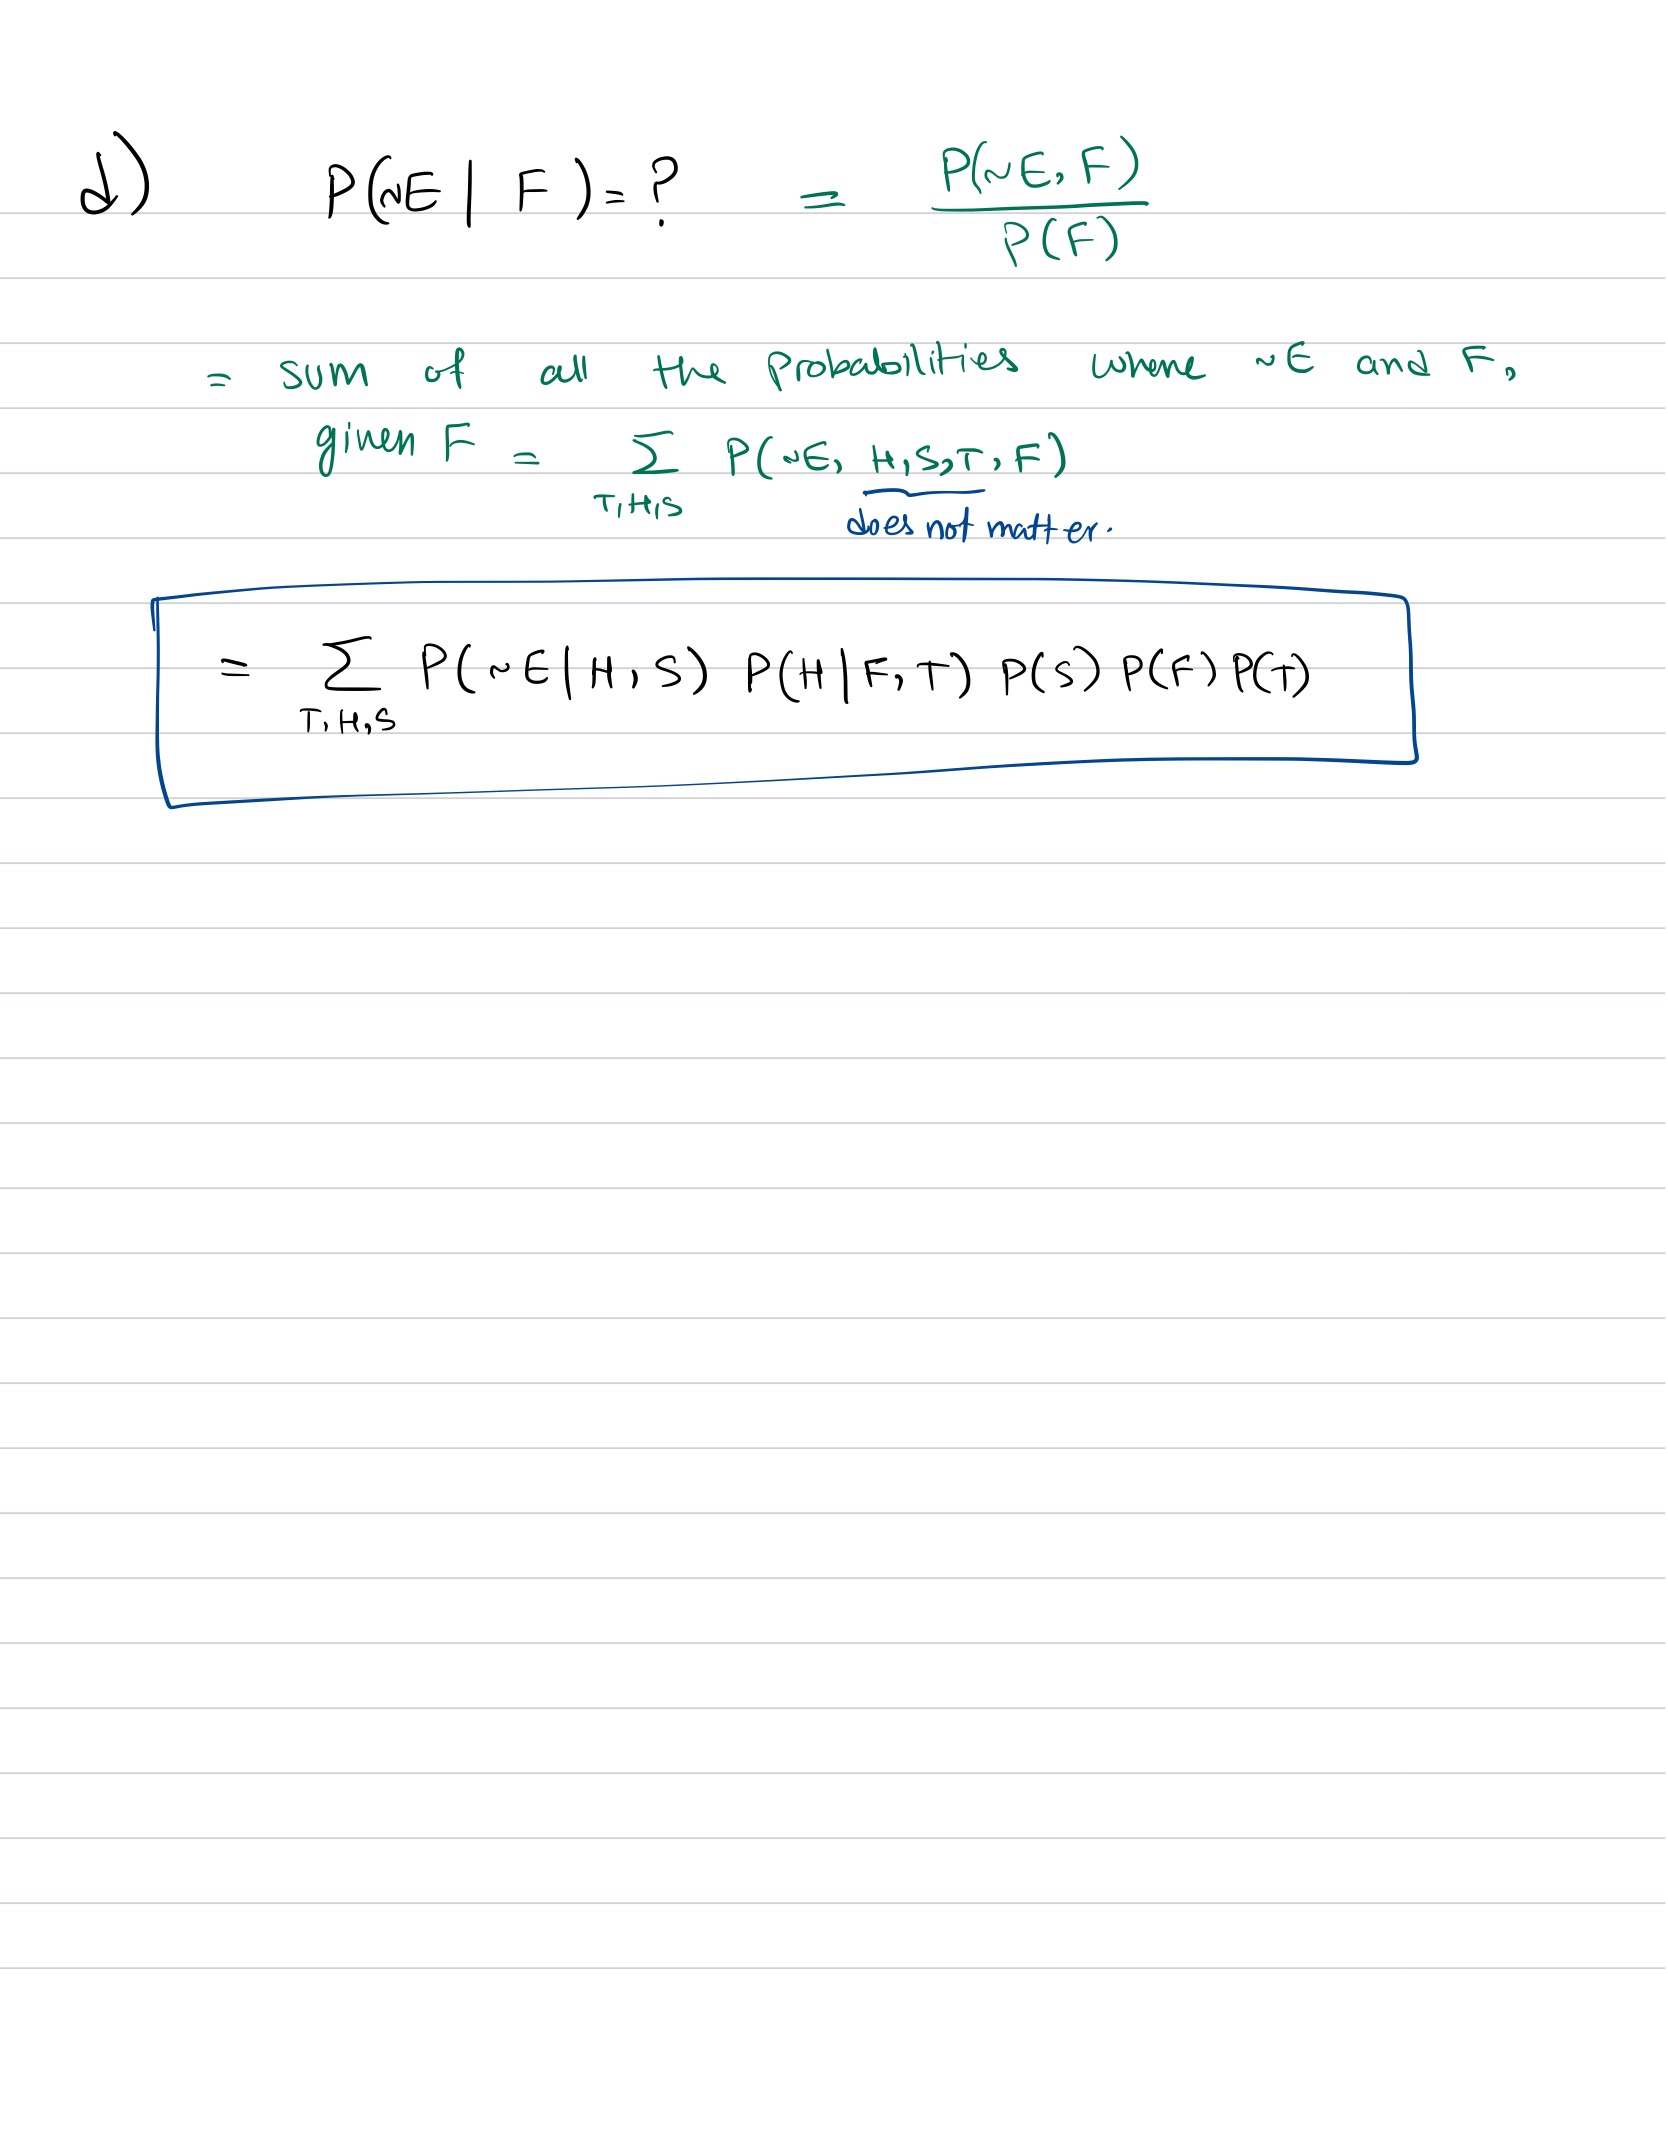 d) P(~E | F) = ? = P(~E, F) / P(F)
= sum of all the probabilities where ~E and F,
given F = Σ P(~E, H, S, T, F)
T, H, S does not matter.
= Σ P(~E | H, S) P(H | F, T) P(S) P(F) P(T)
T, H, S